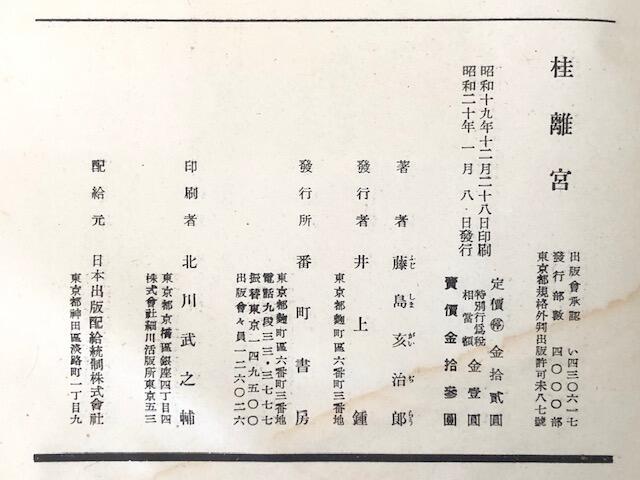 桂離宮
出版會承認 い四三〇六一七
發行部數 四〇〇〇部
東京都規格外判出版許可未八七號
昭和十九年十二月二十八日印刷
昭和二十年 一月 八 日發行
定價 ㊕ 金拾貳圓
特別行爲税相當額 金壹圓
賣價金拾參圓
著者 藤島亥治郎
ふじ しま がい ぢ らう
發行者 井上鍾
東京都麴町區六番町三番地
發行所 番町書房
東京都麴町區六番町三番地
電話九段三三・三七七七
振替東京一四九五〇〇
出版會々員一二六〇二六
印刷者 北川武之輔
東京都京橋區銀座四丁目四
株式會社細川活版所東京五三
配給元 日本出版配給統制株式會社
東京都神田區淡路町一丁目九